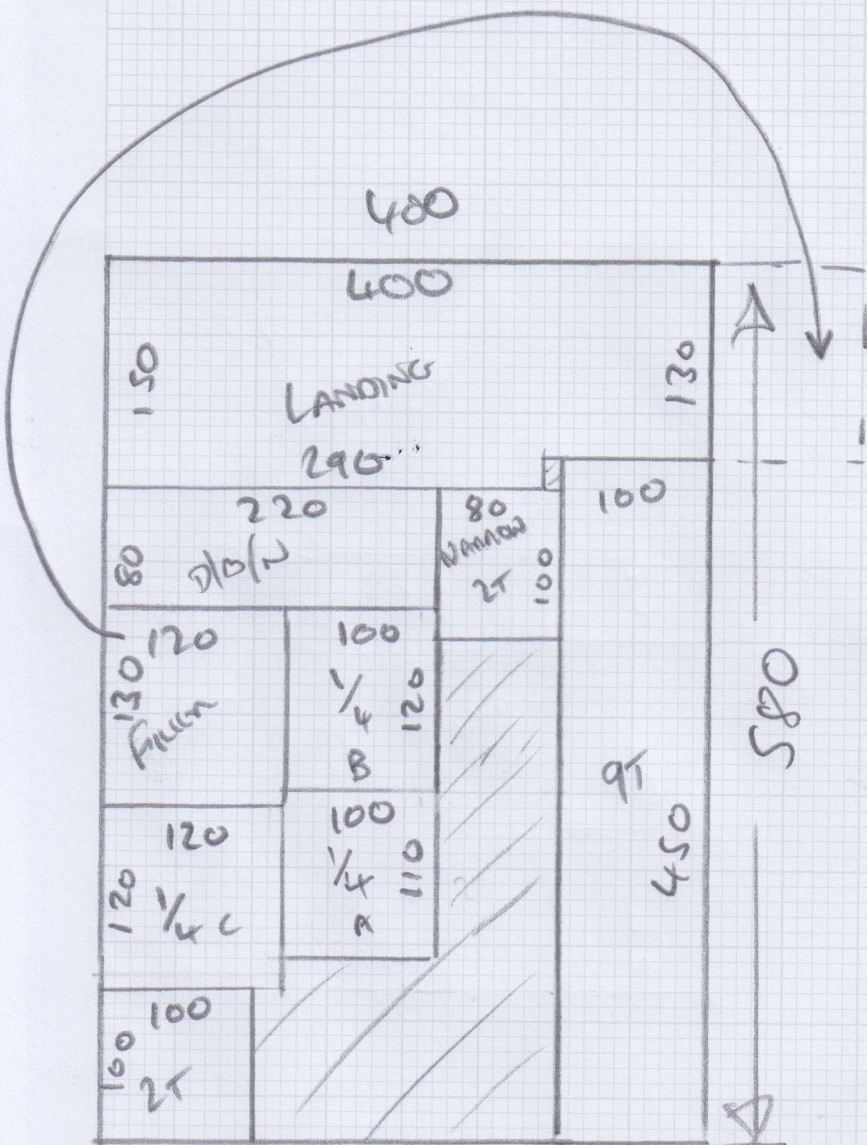 400
400
150
LANDING
130
290
220
80
D/B/N
80
NARROW
2T
100
100
120
130
100
1/4
B
120
9T
450
580
120
120
1/4 C
100
1/4
A
110
100
100
2T